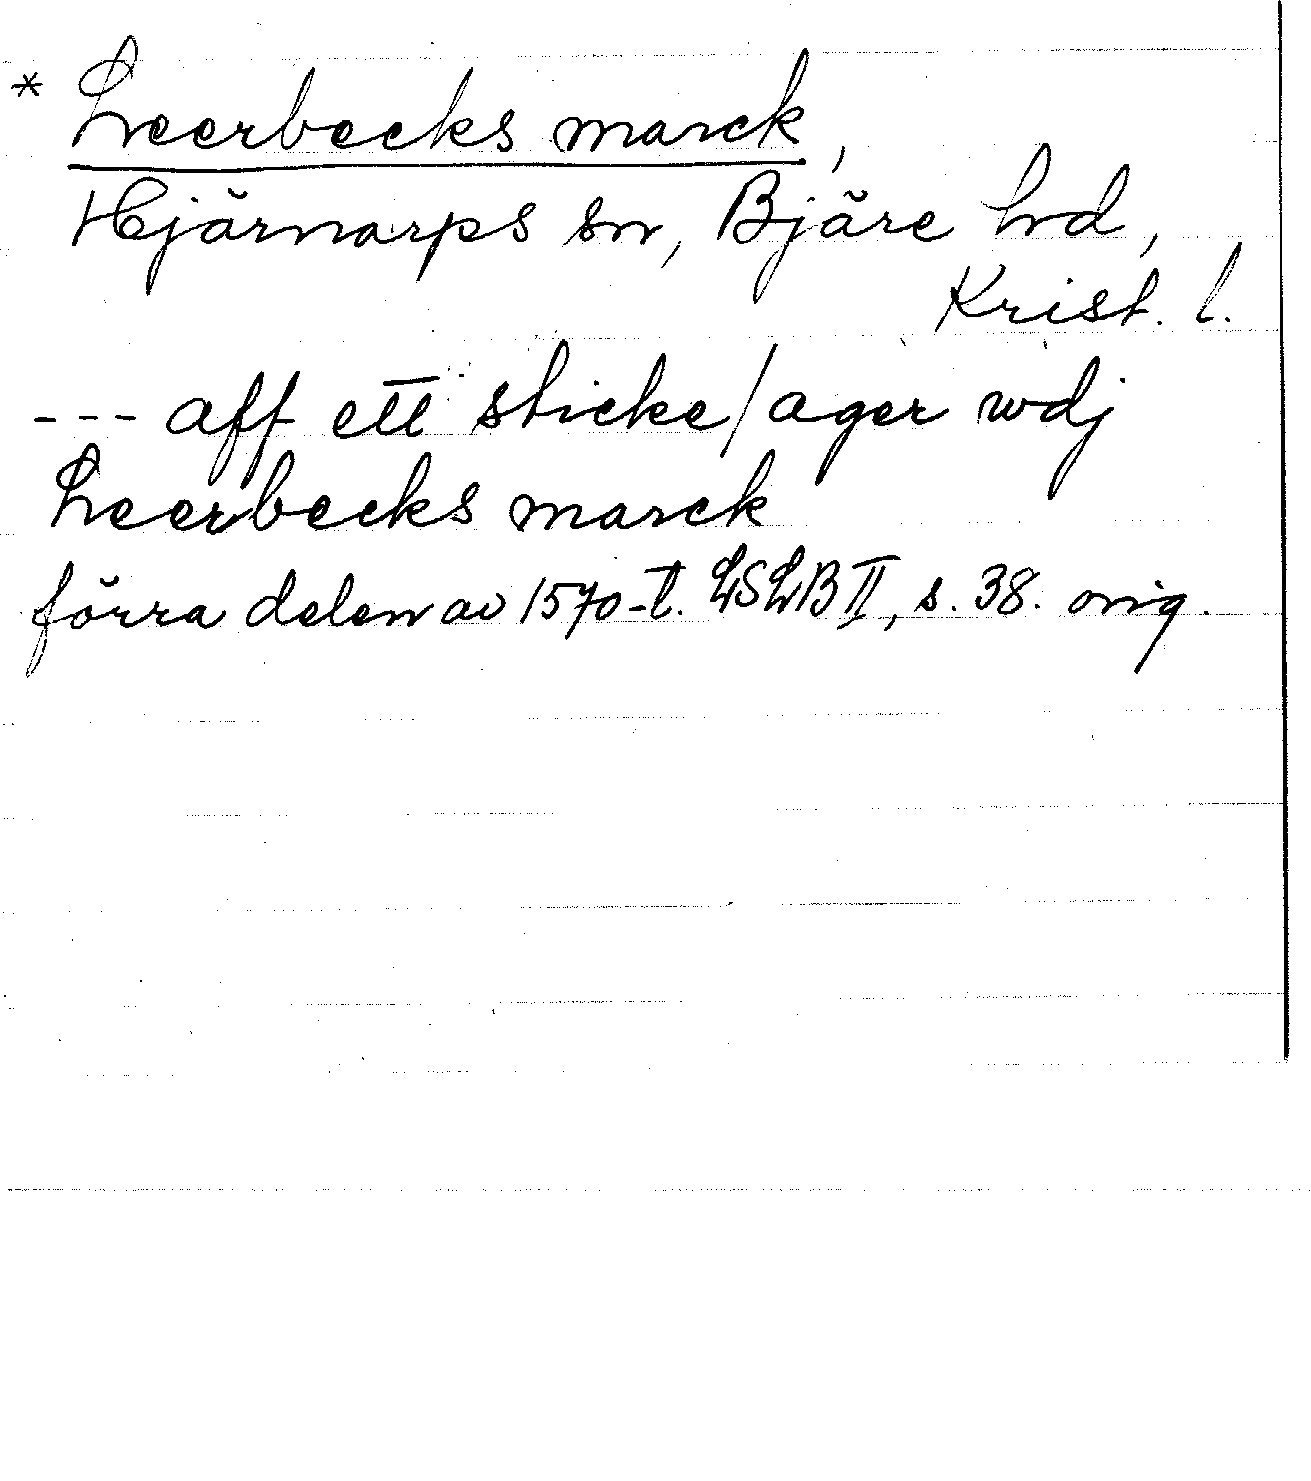 * Leerbecks marck,
Hjärnarps sn, Bjäre hd,
Krist. l.
--- aff ett sticke/ager wdj
Leerbecks marck
förra delen av 1570-t. LSLB II, s. 38. orig.